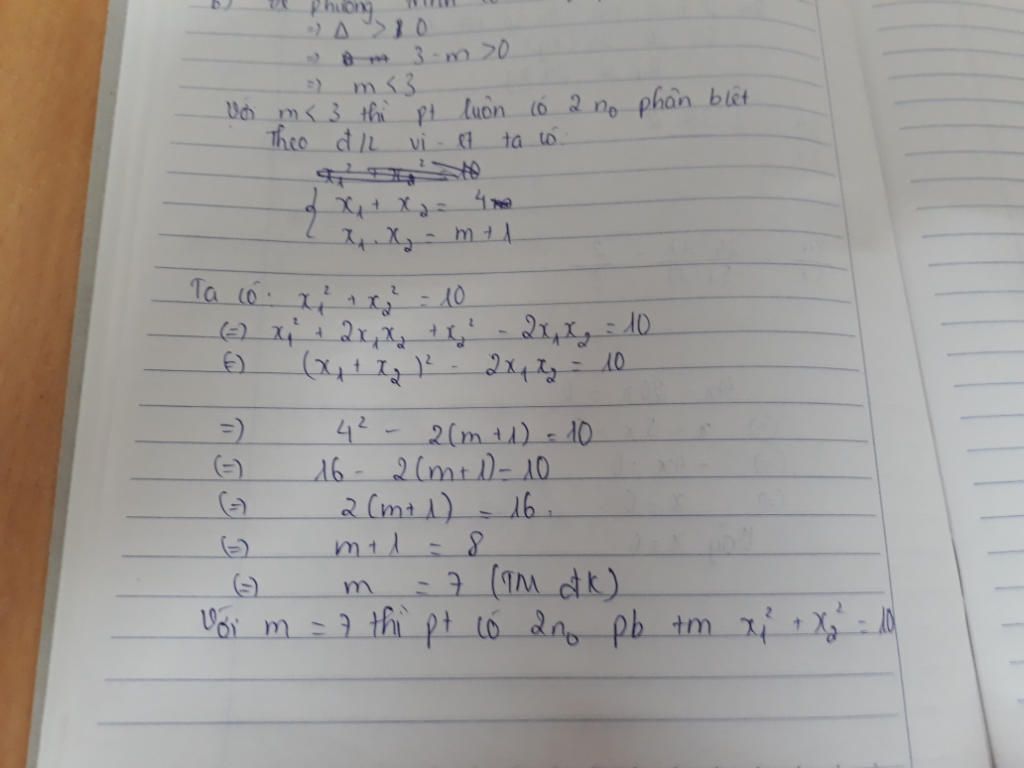 b) để phương trình có
=> Δ > 0
=> 3 - m > 0
=> m < 3
Với m < 3 thì pt luôn có 2 n₀ phân biệt
Theo đ/l vi-ét ta có:
x₁² + x₂² = 10
{ x₁ + x₂ = 4
x₁ . x₂ = m + 1
Ta có: x₁² + x₂² = 10
(=) x₁² + 2x₁x₂ + x₂² - 2x₁x₂ = 10
(=) (x₁ + x₂)² - 2x₁x₂ = 10
=) 4² - 2(m + 1) = 10
(=) 16 - 2(m + 1) = 10
(=) 2(m + 1) = 16.
(=) m + 1 = 8
(=) m = 7 (TM đk)
Với m = 7 thì pt có 2n₀ pb tm x₁² + x₂² = 10